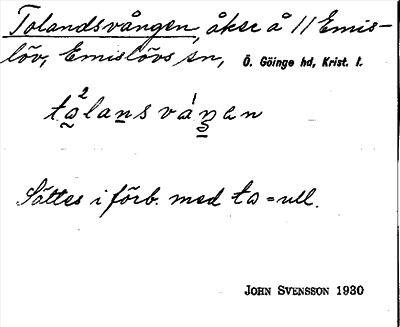 Tolandsvången, åkse å 11 Emis-
löv, Emislövs sn, Ö. Göinge hd, Krist. l.
Sättes i förb. med to = ull.
JOHN SVENSSON 1930